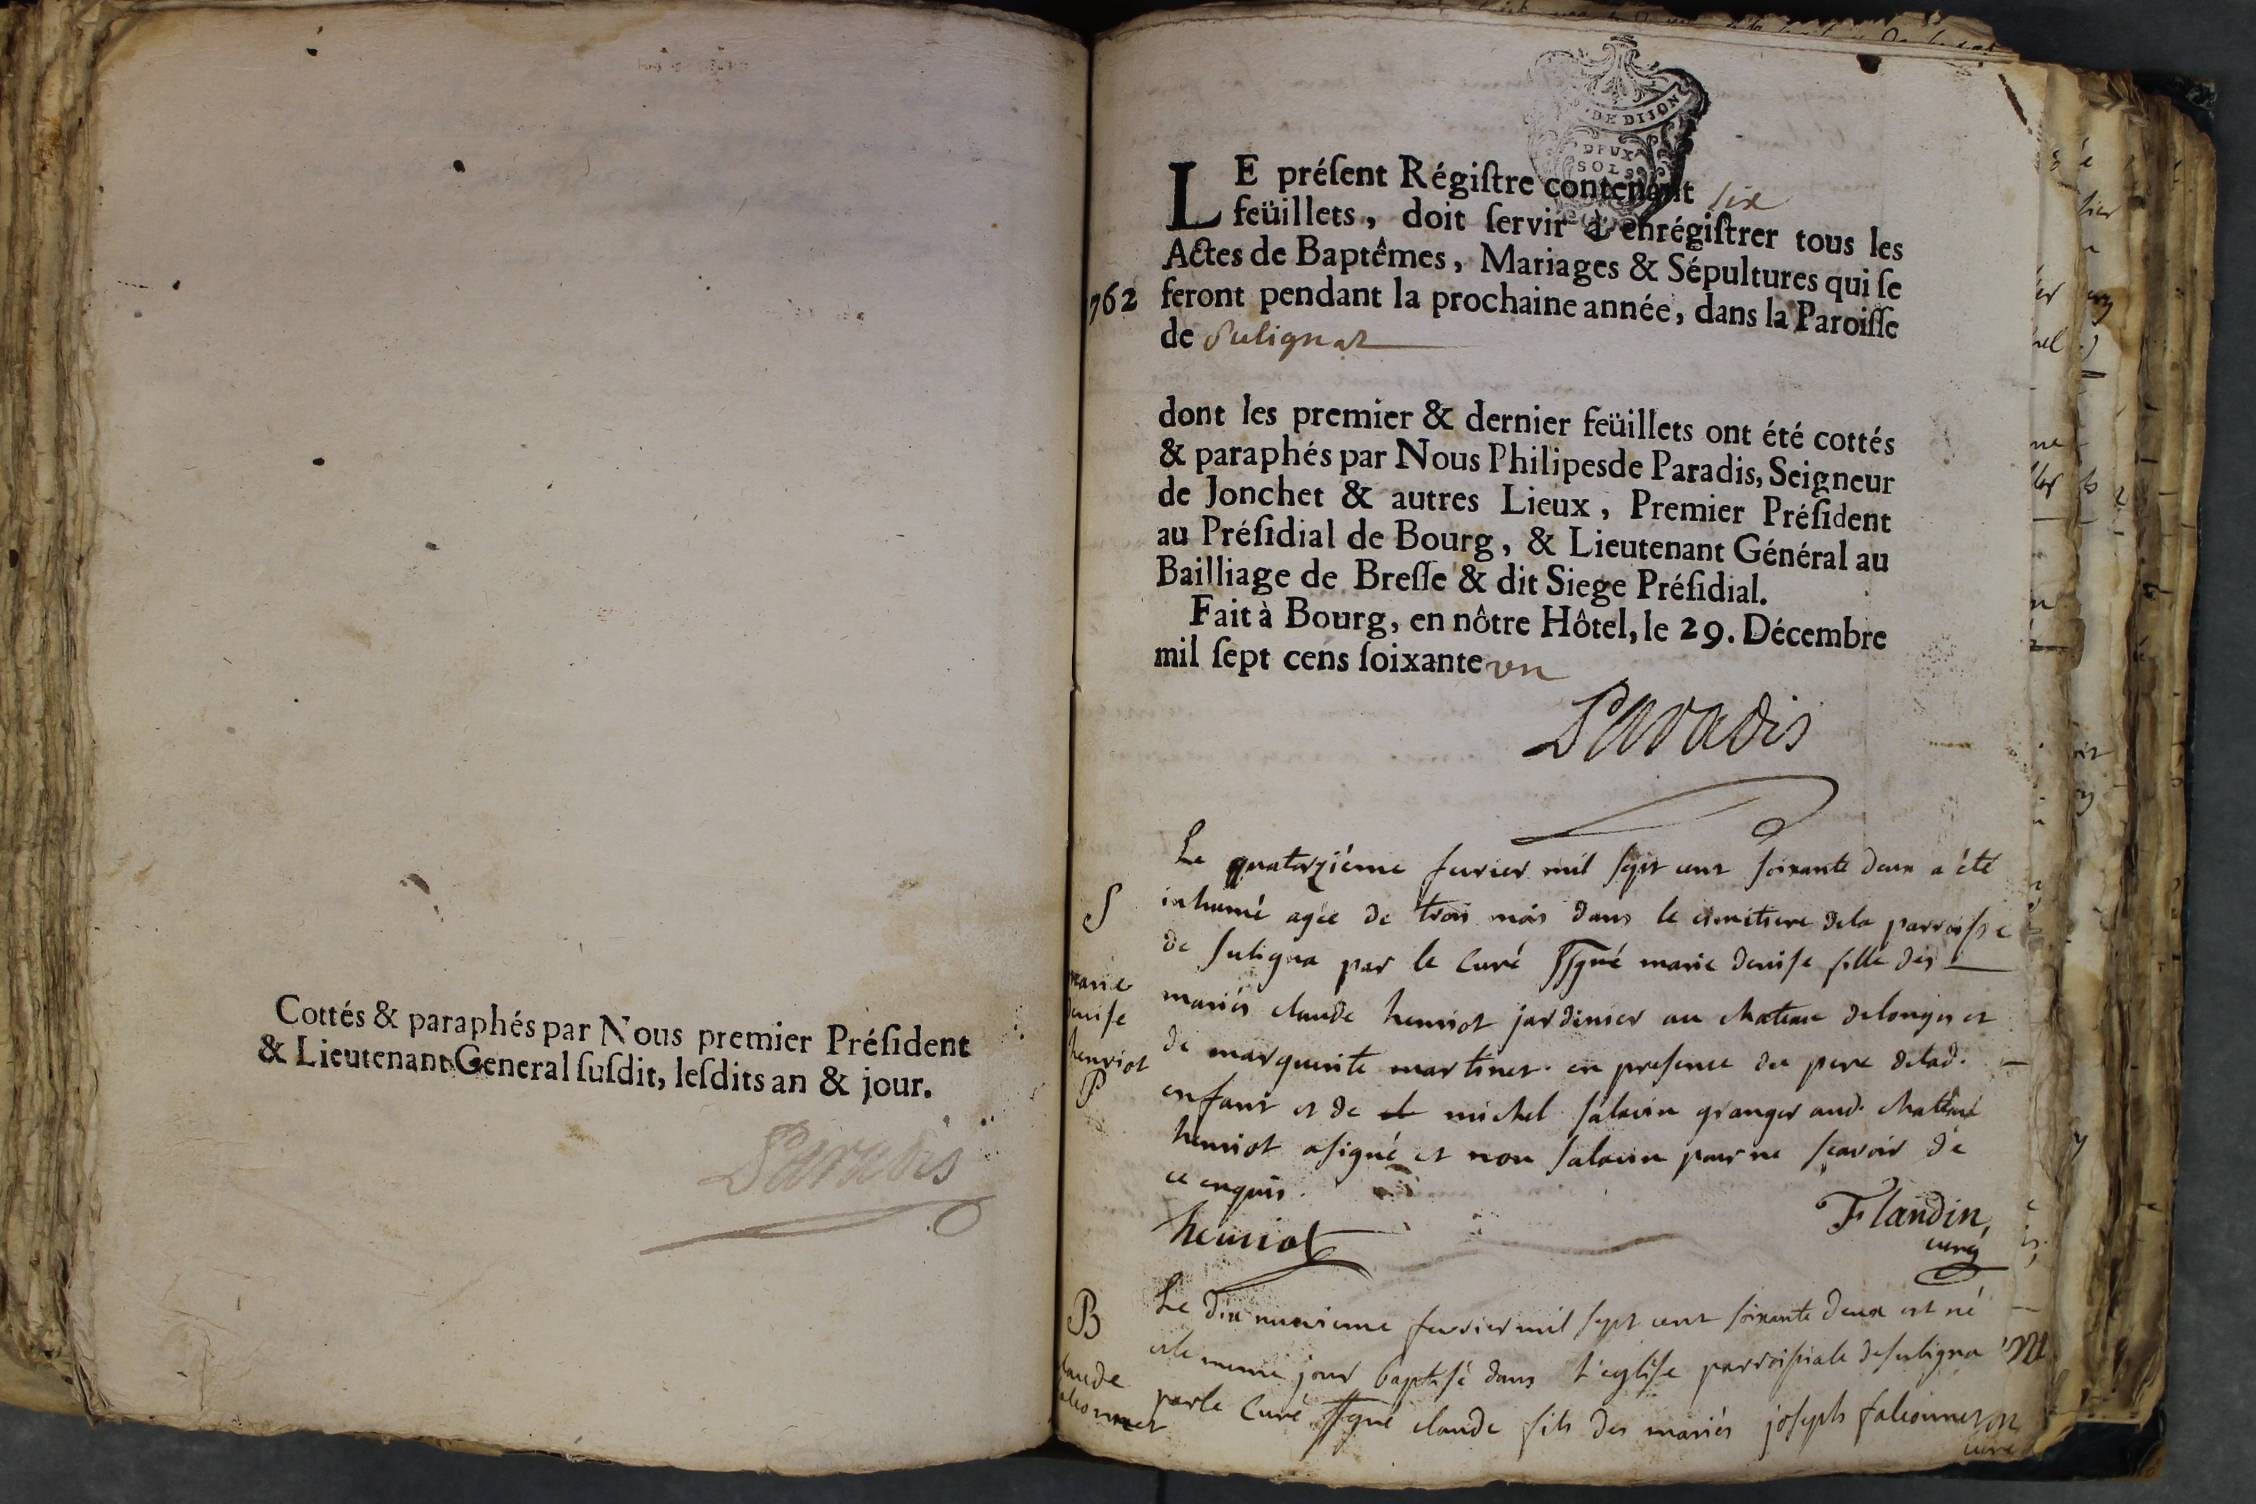 Cottés & paraphés par Nous premier Préſident
& Lieutenant General ſuſdit, leſdits an & jour.
Paradis
DE DIJON
DEUX
SOLS
LE préſent Régiſtre contenant six
feüillets, doit ſervir à enrégiſtrer tous les
Actes de Baptêmes, Mariages & Sépultures qui ſe
1762 feront pendant la prochaine année, dans la Paroiſſe
de Sulignat
dont les premier & dernier feüillets ont été cottés
& paraphés par Nous Philipesde Paradis, Seigneur
de Jonchet & autres Lieux, Premier Préſident
au Préſidial de Bourg, & Lieutenant Général au
Bailliage de Breſſe & dit Siege Préſidial.
Fait à Bourg, en nôtre Hôtel, le 29. Décembre
mil ſept cens ſoixante un
Paradis
S
marie
denise
henriot
P
Le quatorziéme fevrier mil sept cent soixante deux a été
inhumé agée de trois mois dans le cimitiere dela parroisse
de suligna par le Curé ssgné marie denise fille des
mariés claude henriot jardinier au chateau delonges et
de marguerite martinet. en presence du pere delad.
enfant et de michel salavin granger aud. chateau
henriot asigné et non salavin pour ne scavoir de
ce enquis.
henriot
Flandin,
curé
B
claude
falconnet
Le dix neuvieme fevrier mil sept cent soixante deux est né
et le meme jour baptisé dans l'eglise parroissiale de suligna
par le Curé ssgné claude fils des mariés joseph falconnet et
curé